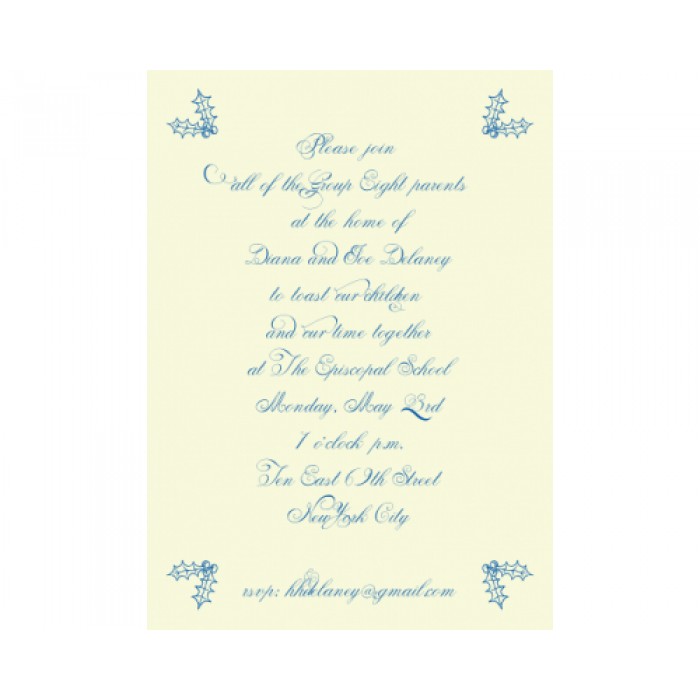 Please join
all of the Group Eight parents
at the home of
Diana and Joe Delaney
to toast our children
and our time together
at The Episcopal School
Monday, May 23rd
7 o'clock p.m.
Ten East 69th Street
New York City
rsvp: hhdelaney@gmail.com